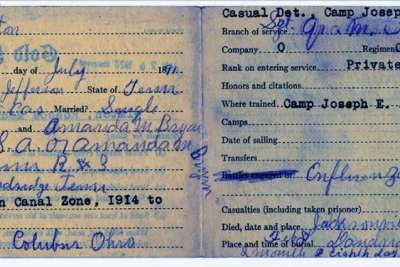 ton
day of July 1891
Jefferson State of Tenn
Cas. Married? Single
and Amanda M. Bryan
S. A. or Amanda M
R # 3
Dandridge Tenn
n Canal Zone, 1914 to
Columbus Ohio
Casual Det., Camp Joseph
Branch of service Q. M. C
Company O Regiment
Rank on entering service Private
Honors and citations
Where trained Camp Joseph E.
Camps
Date of sailing
Transfers
Battles engaged in Influenza
Casualties (including taken prisoner)
Died, date and place Jacksonville
Place and time of burial Dandri
2 month eighth day